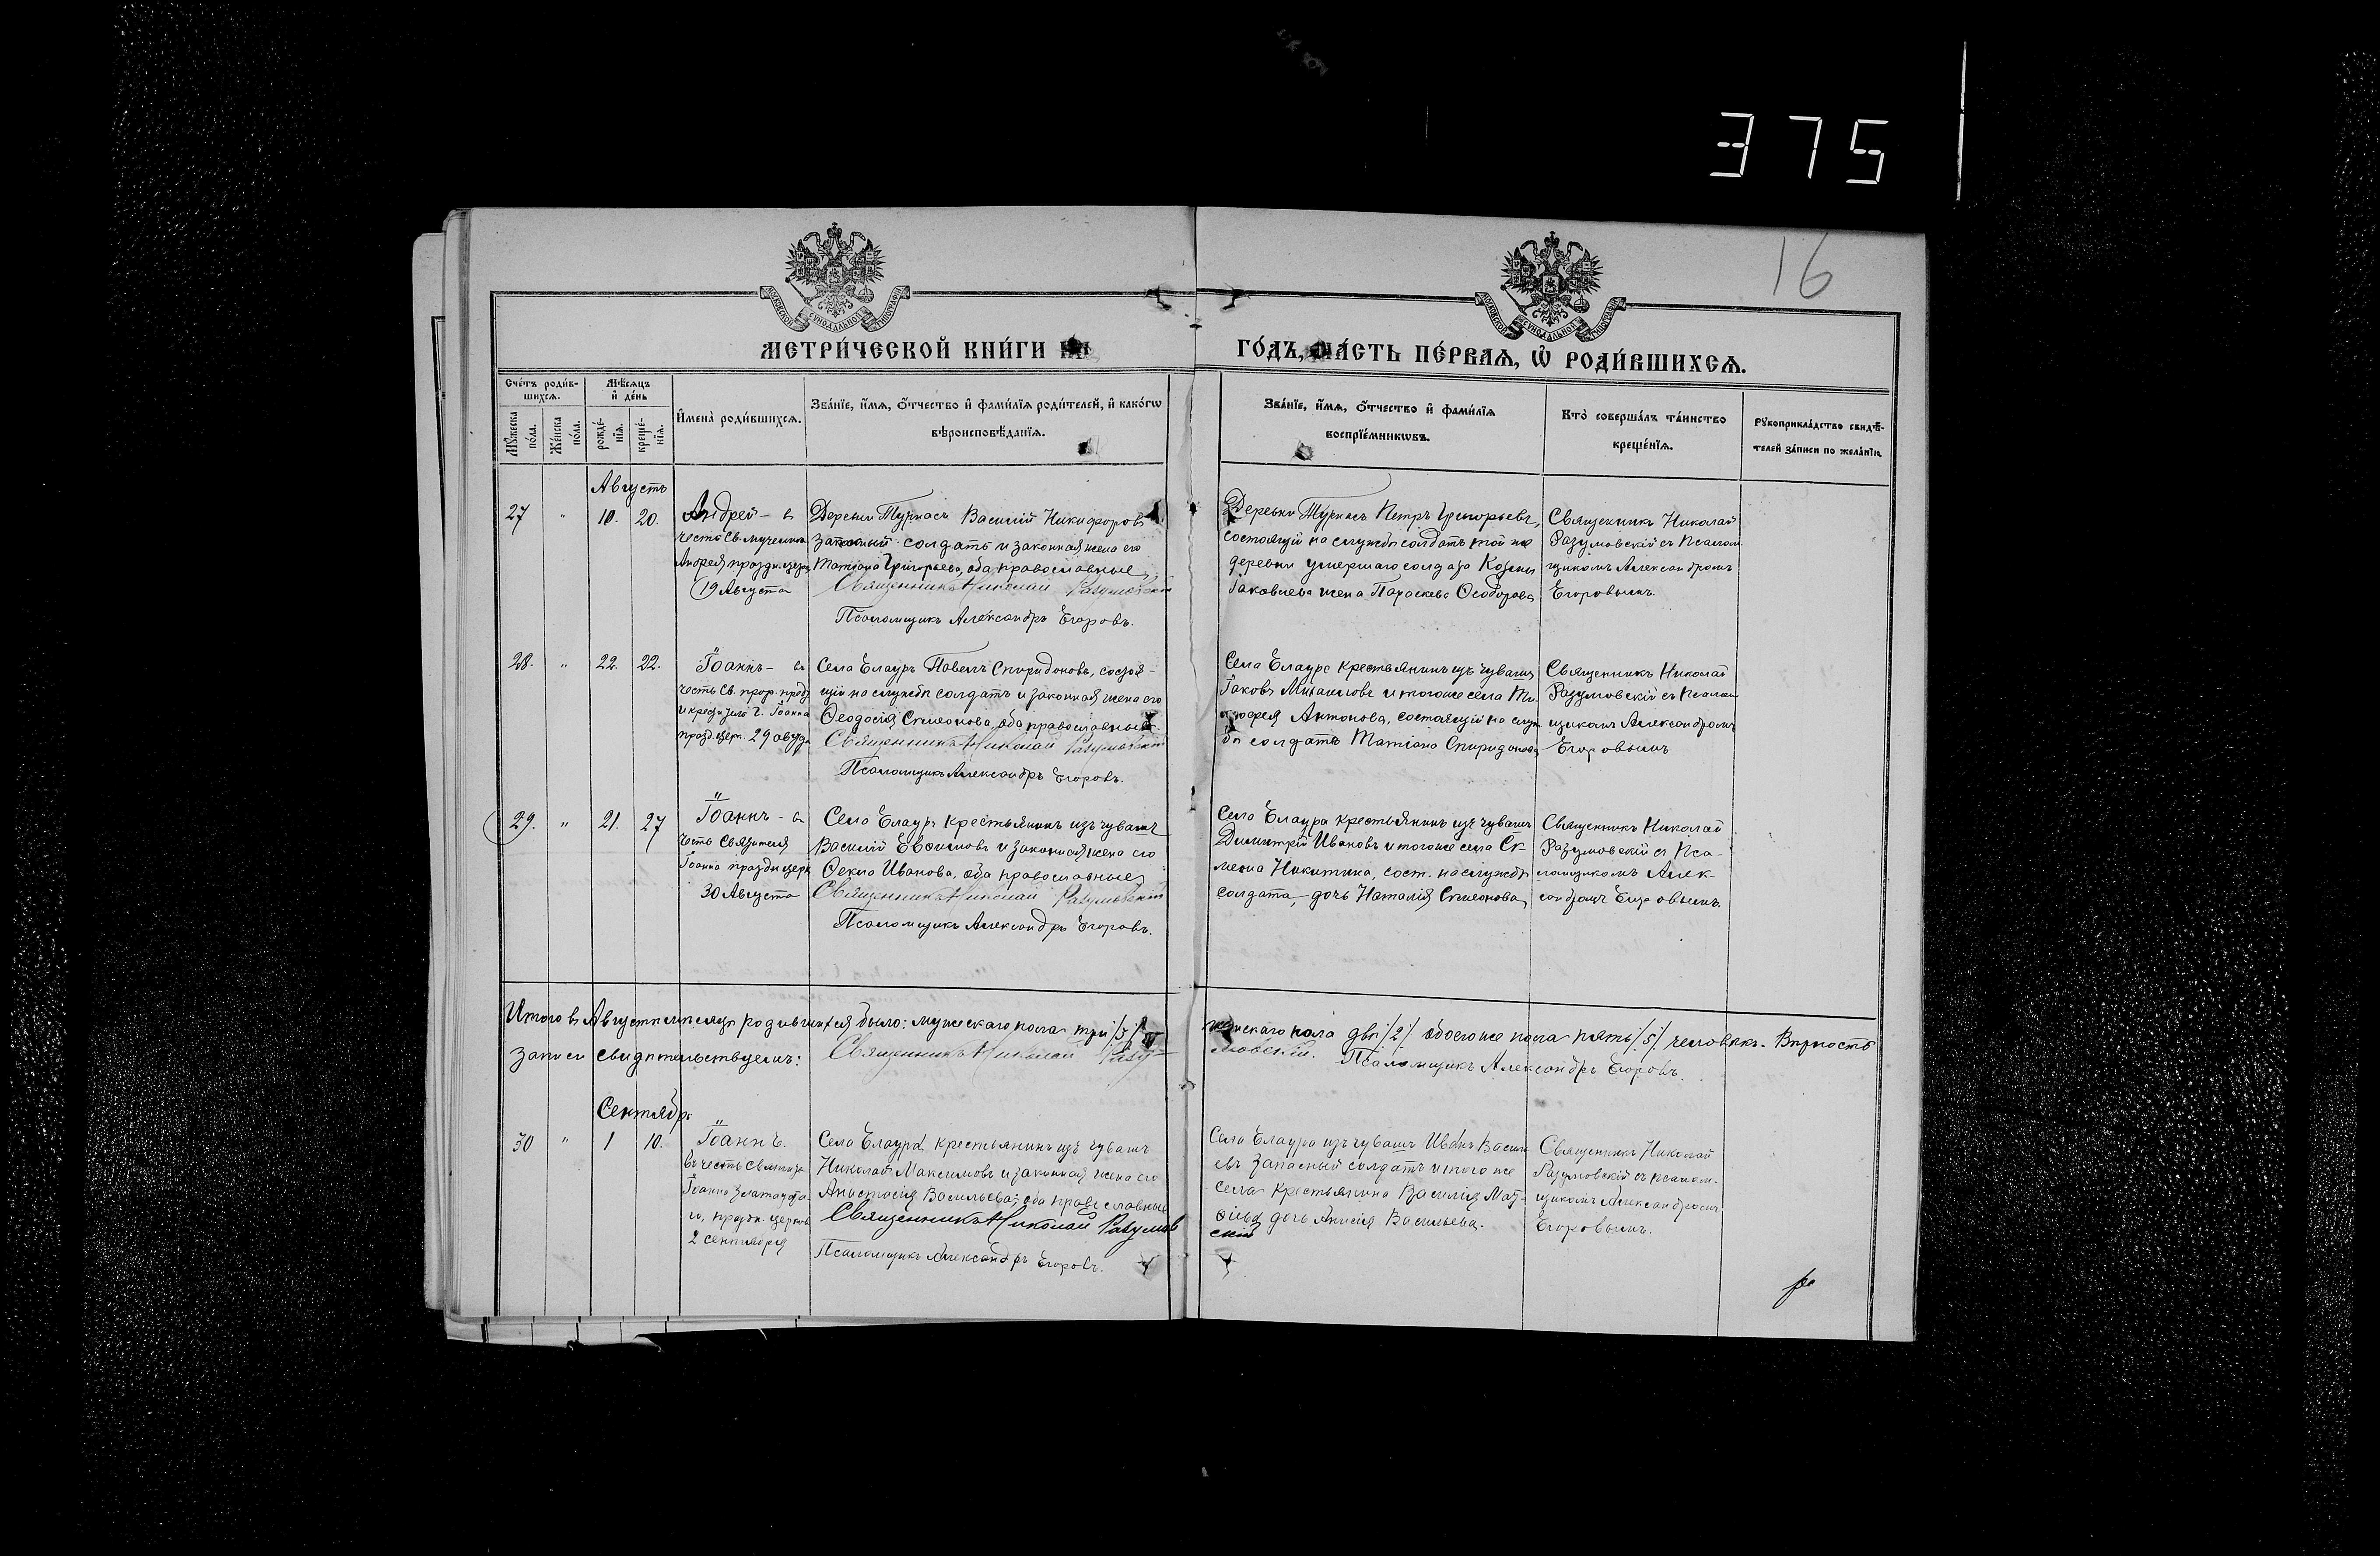 375
16
МОСКОВСКОЙ СУНОДАЛЬНОЙ ТИПОГРАФІИ
МОСКОВСКОЙ СУНОДАЛЬНОЙ ТИПОГРАФІИ
МЕТРИ́ЧЕСКОЙ КНИ́ГИ НА
ГО́ДЪ, ЧА́СТЬ ПЕ́РВАЯ, Ѽ РОДИ́ВШИХСЯ.
Сче́тъ роди́в-
шихся.
Мѣ́сяцъ
и҆ де́нь
Мꙋ́жеска
по́ла.
Же́нска
по́ла.
рожде́-
нїя.
креще́-
нїя.
И҆мена̀ роди́вшихся.
Зва́нїе, и҆́мя, ѻ҆́тчество и҆ фами́лїя роди́телей, и҆ како́гѡ
вѣроисповѣ́данїя.
Зва́нїе, и҆́мя, ѻ҆́тчество и҆ фами́лїя
воспрїе́мникѡвъ.
Кто̀ соверша́лъ та́инство
креще́нїя.
Рꙋкоприкла́дство свидѣ́-
телей за́писи по жела́нїю.
Августъ
27 " 10. 20.
Андрей - въ
честь Св. мученика
Андрея праздн. церк.
19 Августа
Деревни Турмасъ Василій Никифоровъ
запасный солдатъ и законная жена его
Татіана Григорьева, оба православные
Священникъ Николай Разумовскій
Псаломщикъ Александръ Егоровъ.
Деревни Турмасъ Петръ Григорьевъ,
состоящій на службѣ солдатъ той же
деревни умершаго солдата Козьмы
Іаковлева жена Параскева Ѳеодорова
Священникъ Николай
Разумовскій съ Псалом
щикомъ Александромъ
Егоровымъ.
28. " 22. 22.
Іоаннъ - въ
честь Св. прор. пред.
и крестителя Г. Іоанна
празд. церк. 29 августа
Села Елауръ Павелъ Спиридоновъ, состоя-
щій на службѣ солдатъ и законная жена его
Ѳеодосія Симеонова, оба православные.
Священникъ Николай Разумовскій
Псаломщикъ Александръ Егоровъ.
Села Елауръ крестьянинъ изъ чувашъ
Іаковъ Михаиловъ и тогоже села Ти-
моѳея Антонова, состоящій на служ
бѣ солдатъ Татіана Спиридонова
Священникъ Николай
Разумовскій съ Псалом
щикомъ Александромъ
Егоровымъ
29. " 21. 27
Іоаннъ - въ
честь Святителя
Іоанна праздн церк
30 Августа
Села Елауръ крестьянинъ изъ чувашъ
Василій Евѳимовъ и законная жена его
Ѳекла Иванова, оба православные
Священникъ Николай Разумовскій
Псаломщикъ Александръ Егоровъ.
Села Елаура крестьянинъ изъ чувашъ
Димитрій Ивановъ и тогоже села Си-
меона Никитина, сост. на службѣ
солдата, дочь Наталія Симеонова
Священникъ Николай
Разумовскій съ Пса-
ломщикомъ Алек-
сандромъ Егоровымъ.
Итого въ Августѣ мѣсяцѣ родившихся было: мужескаго пола три /3/
женскаго пола двѣ /2/ обоего же пола пять /5/ человѣкъ. Вѣрность
записи свидѣтельствуемъ: Священникъ Николай Разу-
мовскій. Псаломщикъ Александръ Егоровъ.
Сентябрь
30 " 1 10.
Іоаннъ.
въ честь Святителя
Іоанна Златоуста-
го, празн. церков
2 сентября
Села Елаура крестьянинъ изъ чувашъ
Николай Максимовъ и законная жена его
Анастасія Васильева; оба православные
Священникъ Николай Разумов
скій
Псаломщикъ Александръ Егоровъ.
Села Елаура изъ чувашъ Иванъ Василь
евъ запасный солдатъ и того же
села крестьянина Василія Мат-
ѳіева дочь Анисія Васильева.
Священникъ Николай
Разумовскій съ псалом-
щикомъ Александромъ
Егоровымъ.